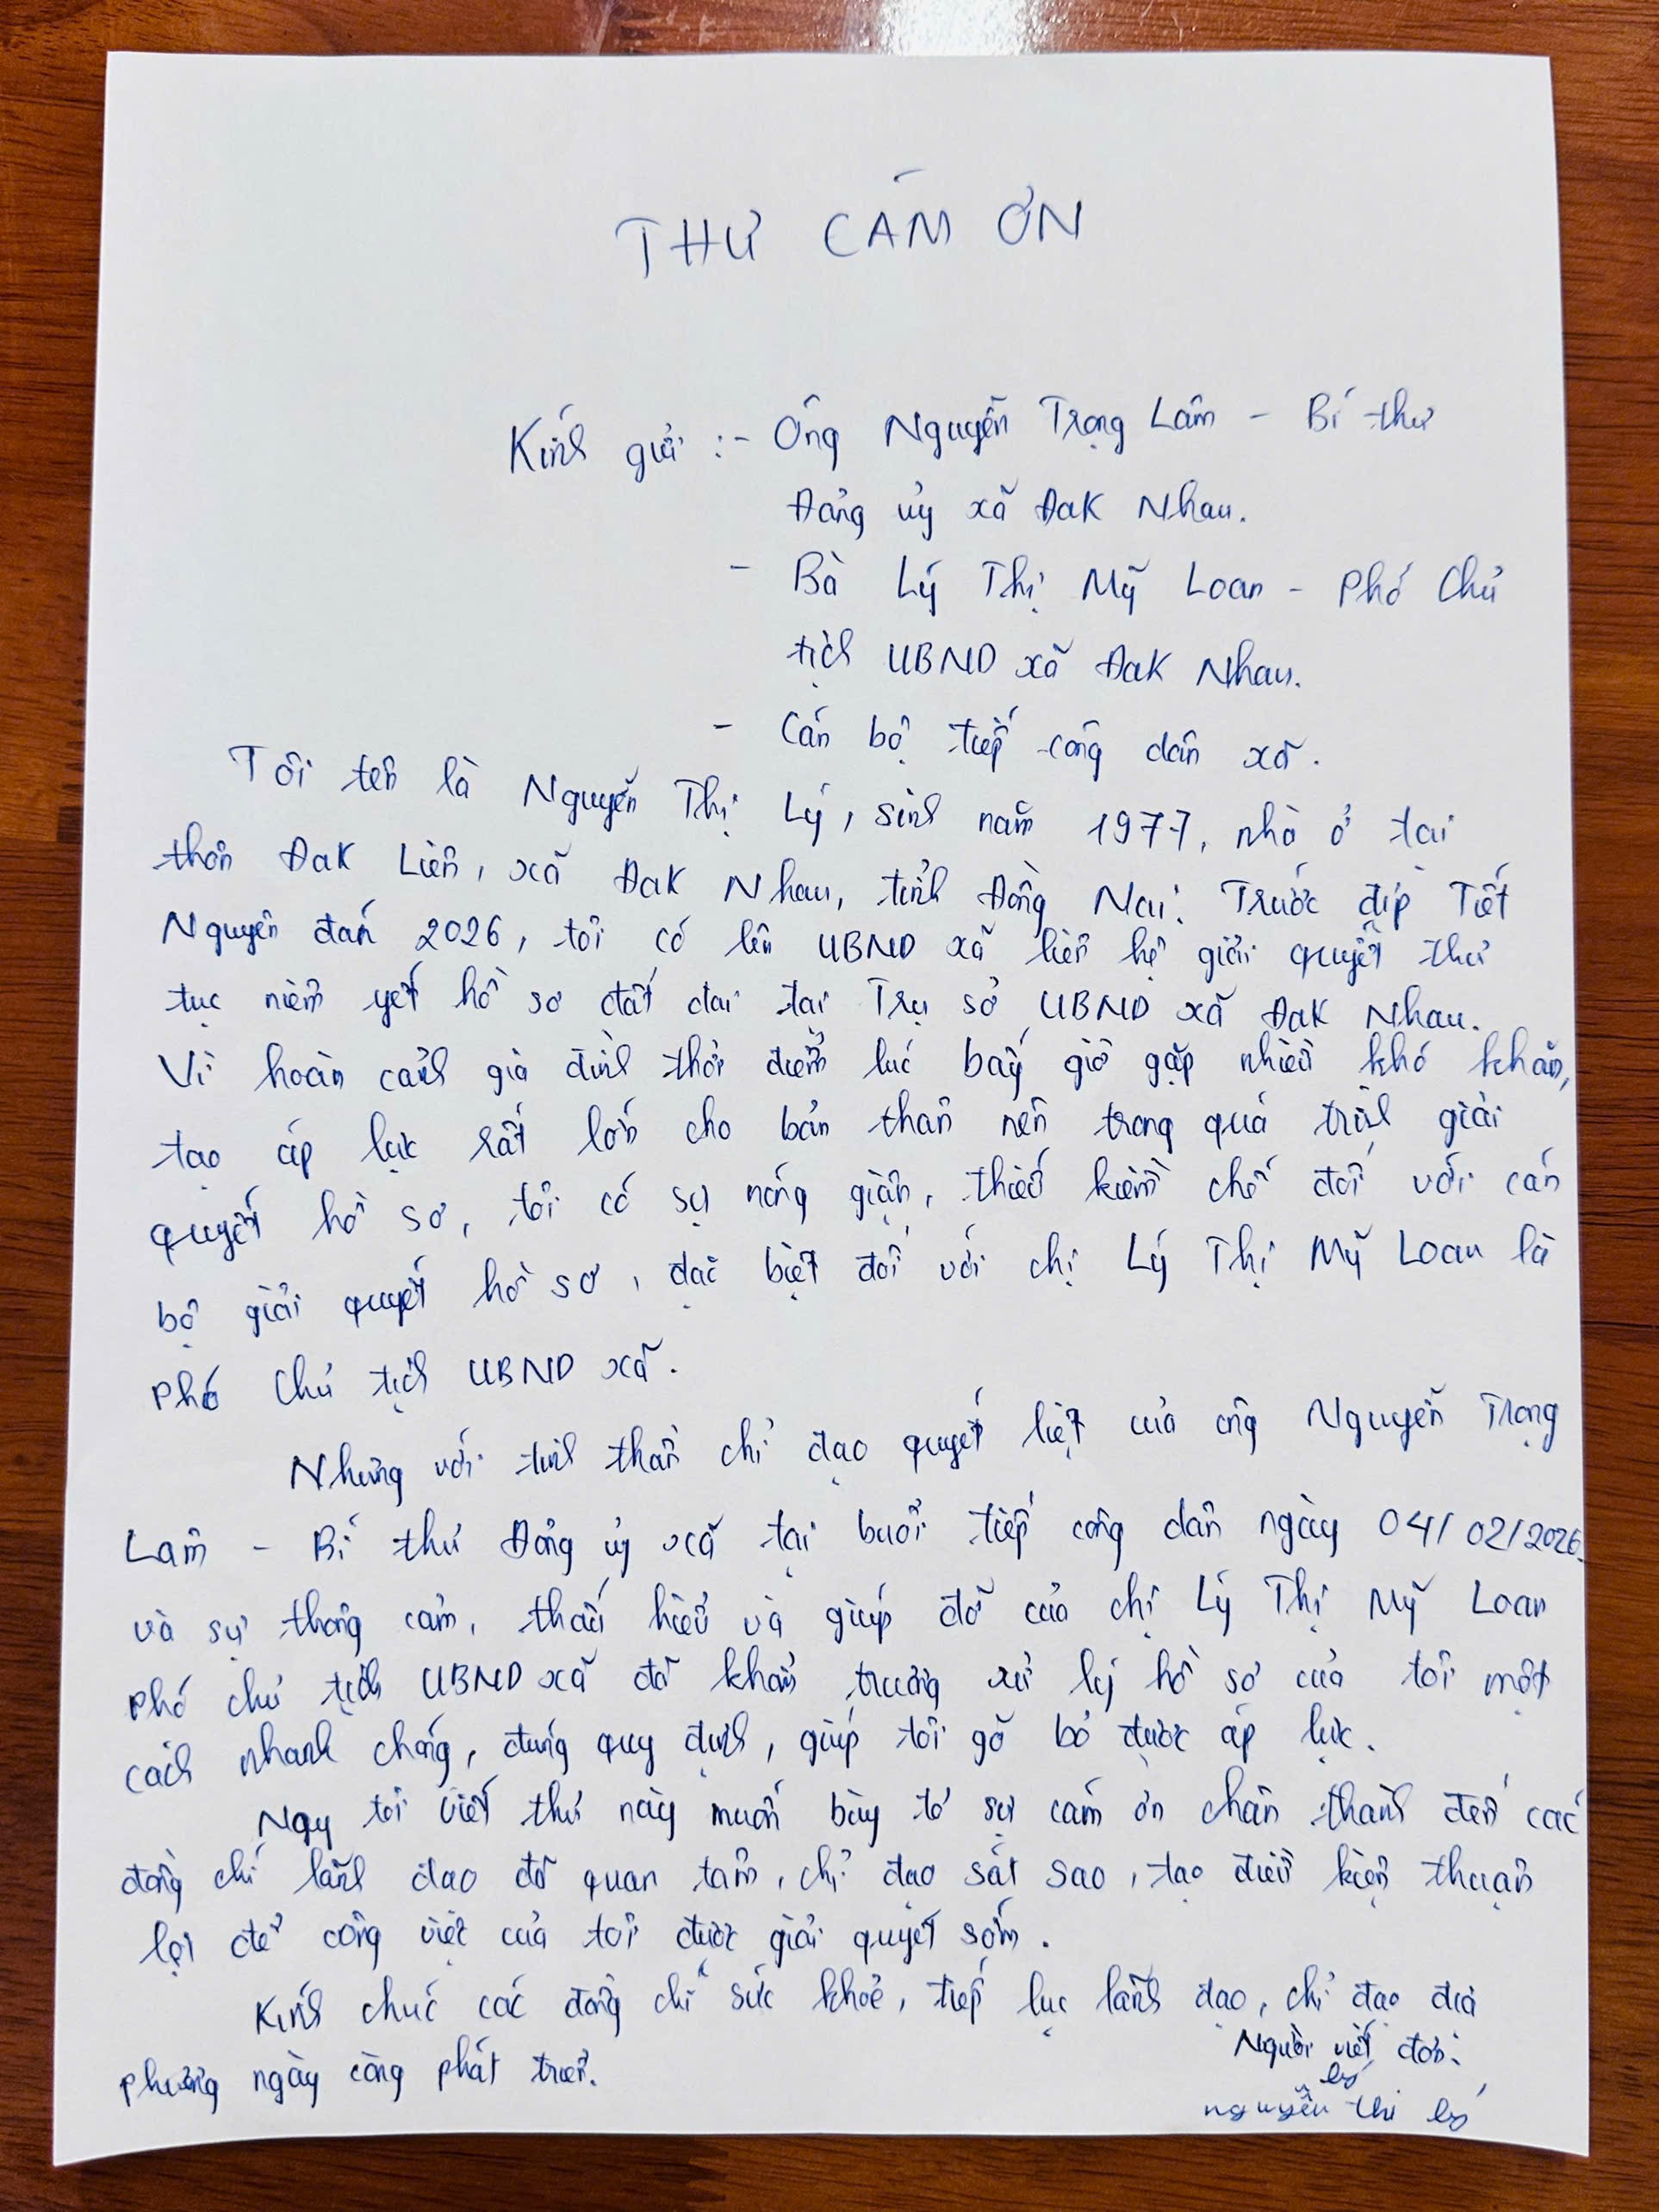 THƯ CẢM ƠN
Kính gửi :- Ông Nguyễn Trọng Lâm - Bí thư
Đảng ủy xã Đak Nhau.
- Bà Lý Thị Mỹ Loan - Phó Chủ
tịch UBND xã Đak Nhau.
- Cán bộ tiếp công dân xã.
Tôi tên là Nguyễn Thị Lý, sinh năm 1977, nhà ở tại
thôn Đak Liên, xã Đak Nhau, tỉnh Đồng Nai. Trước dịp Tết
Nguyên đán 2026, tôi có lên UBND xã liên hệ giải quyết thủ
tục niêm yết hồ sơ đất đai tại Trụ sở UBND xã Đak Nhau.
Vì hoàn cảnh gia đình thời điểm lúc bấy giờ gặp nhiều khó khăn,
tạo áp lực rất lớn cho bản thân nên trong quá trình giải
quyết hồ sơ, tôi có sự nóng giận, thiếu kiềm chế đối với cán
bộ giải quyết hồ sơ, đặc biệt đối với chị Lý Thị Mỹ Loan là
Phó Chủ tịch UBND xã.
Nhưng với tinh thần chỉ đạo quyết liệt của ông Nguyễn Trọng
Lâm - Bí thư Đảng ủy xã tại buổi tiếp công dân ngày 04/02/2026
và sự thông cảm, thấu hiểu và giúp đỡ của chị Lý Thị Mỹ Loan
Phó chủ tịch UBND xã đã khẩn trương xử lý hồ sơ của tôi một
cách nhanh chóng, đúng quy định, giúp tôi gỡ bỏ được áp lực.
Nay tôi viết thư này muốn bày tỏ sự cảm ơn chân thành đến các
đồng chí lãnh đạo đã quan tâm, chỉ đạo sát sao, tạo điều kiện thuận
lợi để công việc của tôi được giải quyết sớm.
Kính chúc các đồng chí sức khỏe, tiếp tục lãnh đạo, chỉ đạo địa
phương ngày càng phát triển.
Người viết đơn:
lý
nguyễn thi lý